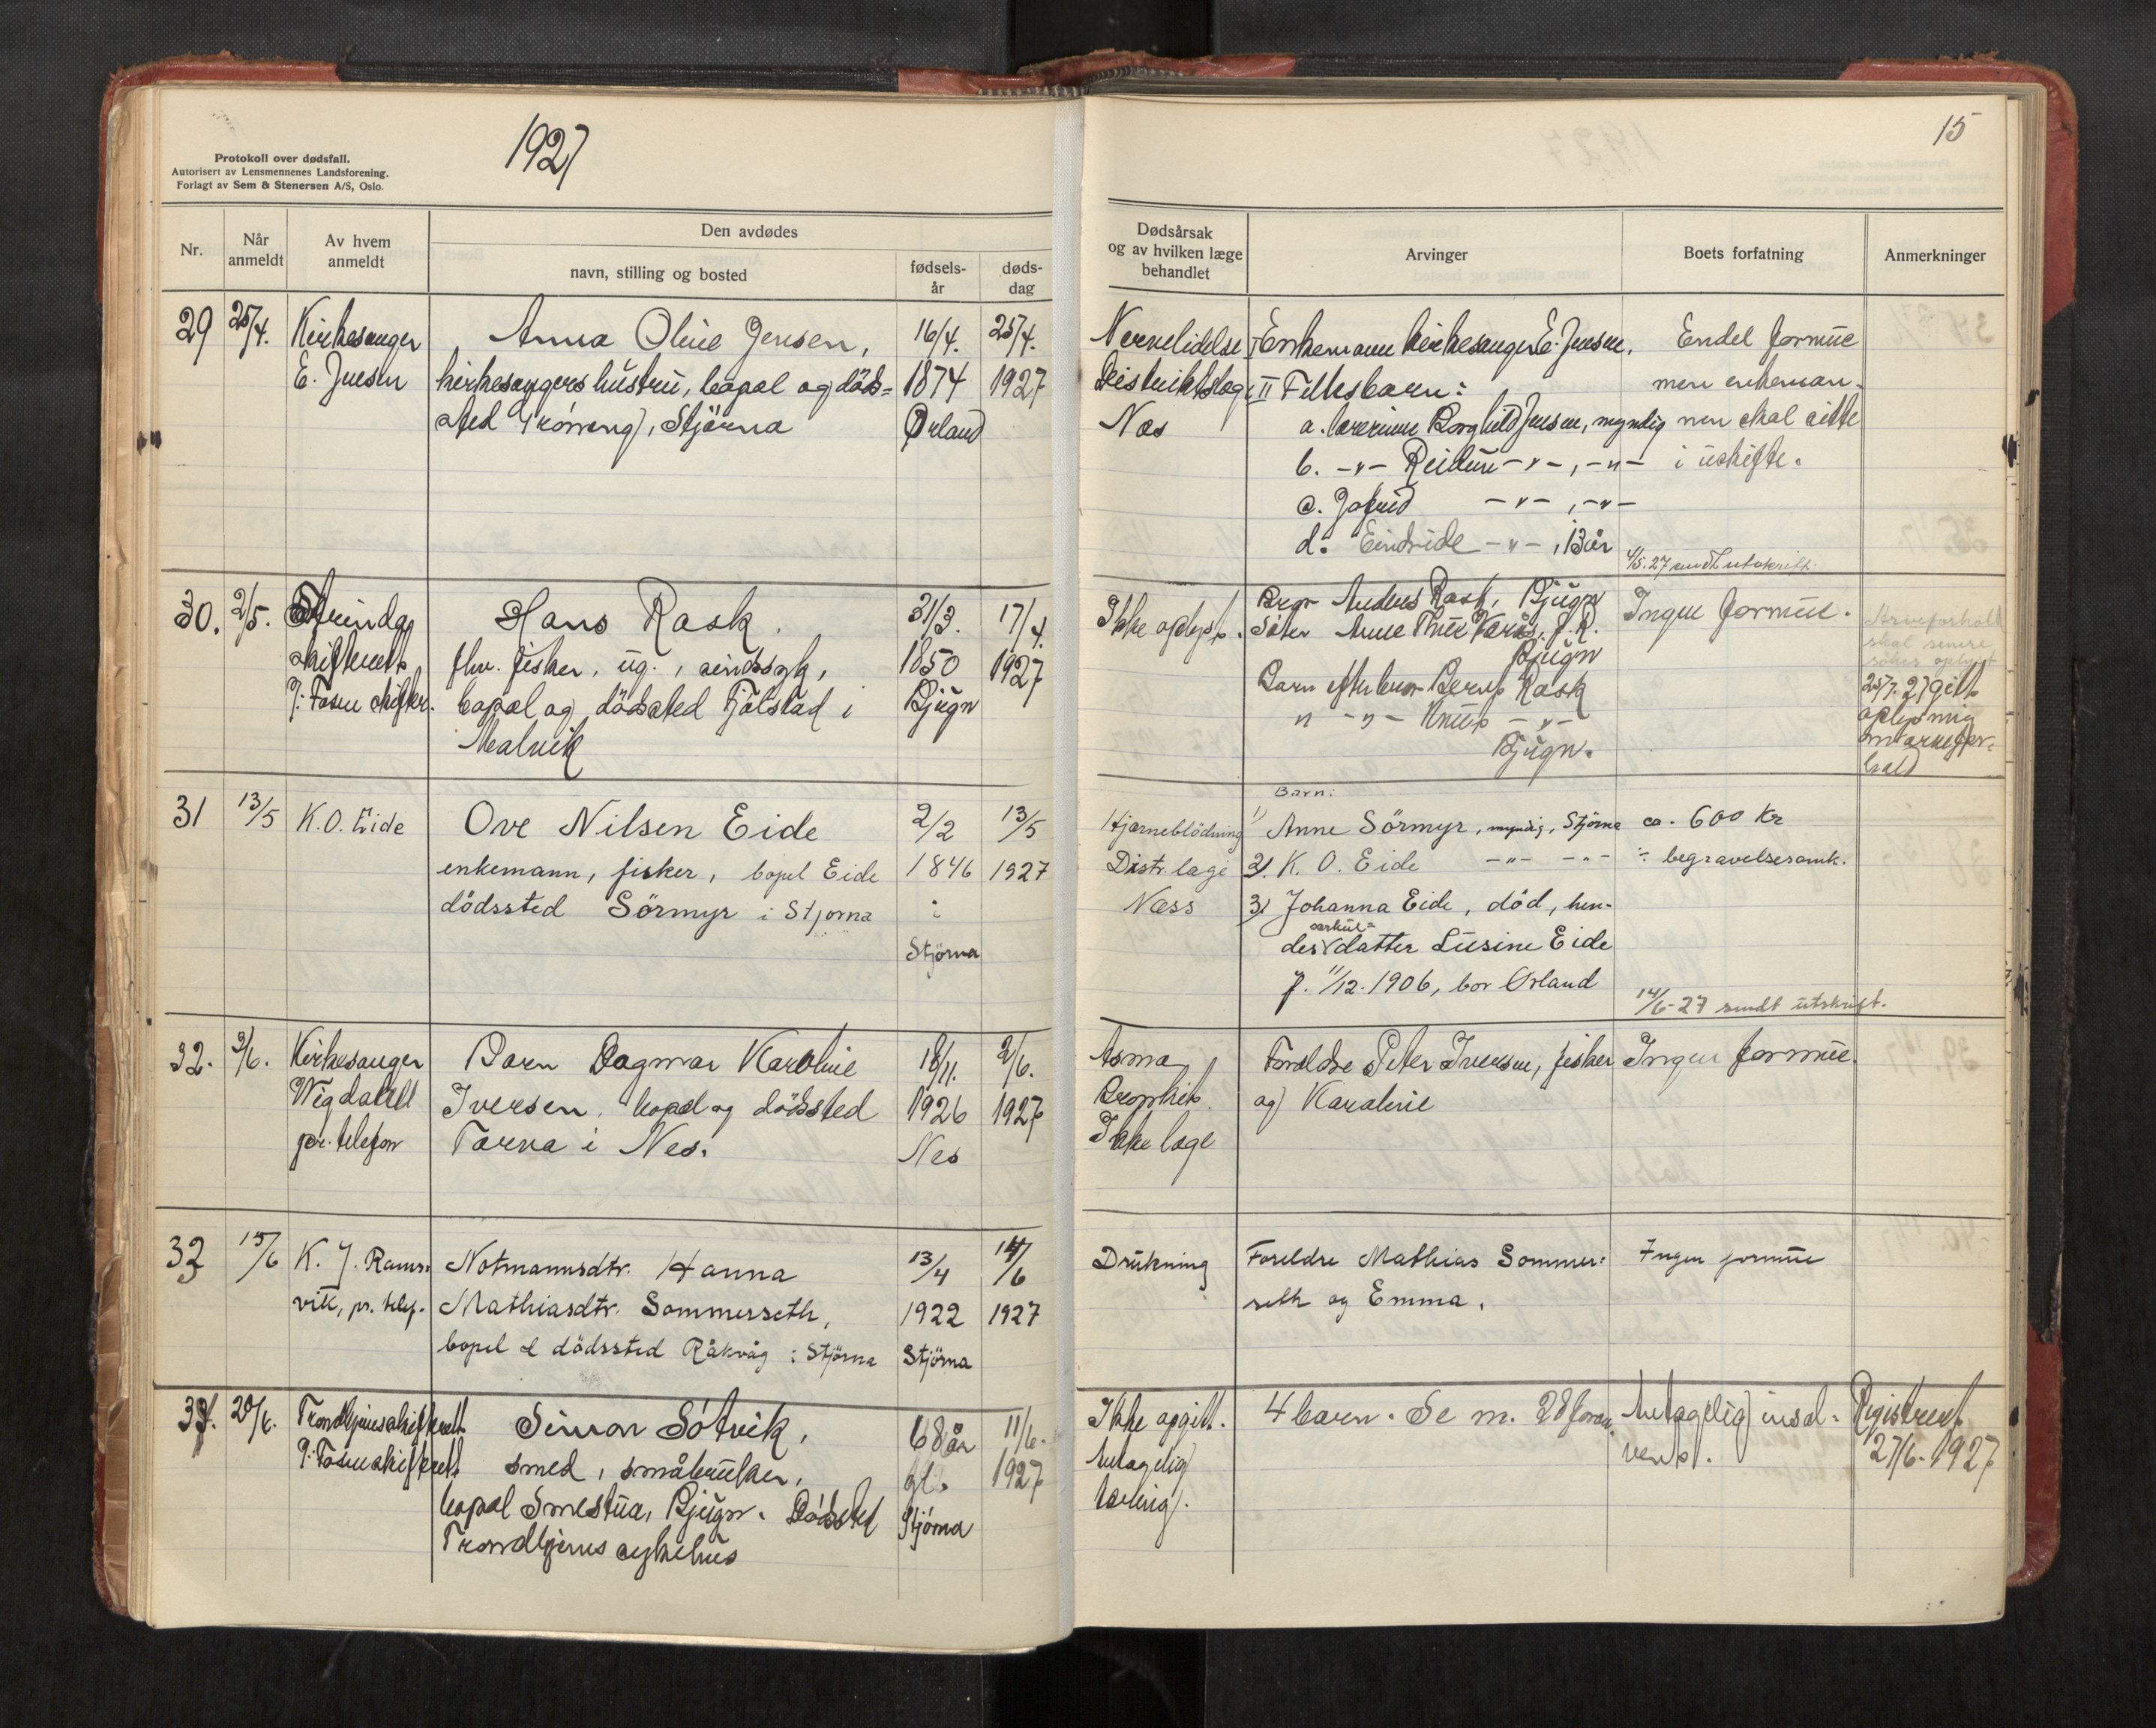 1927
Protokoll over dødsfall.
Autorisert av Lensmennenes Landsforening.
Forlagt av Sem & Stenersen A/S, Oslo.
Nr.
Når anmeldt
Av hvem anmeldt
Den avdødes
navn, stilling og bosted
fødsels-år
døds-dag
29 25/4. Kirkesanger Anna Oline Jensen, 16/4. 25/4.
E. Jensen kirkesangers hustru, bopæl og døds= 1874 1927
sted, Stjørna Ørland
30. 2/5. Strinda Hans Rask. 31/3. 17/4.
skifterett fhv. fisker, ug., sindssyk, 1850 1927
Fosen skifter. bopæl og dødssted Fjølstad i Bjugn
Malvik
31 13/5 K. O. Eide Ove Nilsen Eide 2/2 13/5
enkemann, fisker, bopel Eide 1846 1927
dödssted Sörmyr i Stjorna i
Stjörna
32. 3/6. Kirkesanger Barn Dagmar Karoline 18/11. 2/6.
Wigdahl Iversen, bopæl og dødssted 1926 1927
pr. telefon Tarva i Nes. Nes
33 15/6 K. J. Rams= Notmannsdtr. Hanna 13/4 14/6
vik, pr. telef. Mathiasdtr. Sommerseth, 1922 1927
bopel & dödssted Råkvåg i Stjörna Stjörna
34. 20/6. Trondhjems skifterett Simon Søtvik, 68 år 11/6.
Fosen skifterett smed, småbruker, gl. 1927
bopæl Smestua, Bjugn. Dødssted Stjørna
Trondhjems sykehus
15
Dødsårsak og av hvilken læge behandlet
Arvinger
Boets forfatning
Anmerkninger
Nervelidelse I Enkemann kirkesanger E. Jensen. Endel formue
Distriktslæge II Fellesbarn: men enkeman-
Næs a. lærerinne Borghild Jensen, myndig nen skal sitte
b. -"- Reidun -"-, -"- i uskifte.
c. Jofrid -"-, -"-
d. Eindride -"-, 13 år
4/5.27 sendt utskrift.
Ikke oplyst. Bror Anders Rask, Bjugn Ingen formue. Arveforhold
Søster Anne skal senere
Bjugn søkes oplyst
Barn efter bror Bernt Rask 25/7.27 gitt
" -"- Knut -"- oplysning
Bjugn. om arvefor-
hold
Barn:
Hjerneblödning 1) Anne Sörmyr, myndig, Stjörna ca. 600 Kr
Distr. læge 2). K. O. Eide -"- -"- ÷ begravelsesomk.
Næss 3) Johanna Eide, död, hen-
særkul=
des datter Lusine Eide
f. 11/12. 1906, bor Ørland
14/6-27 sendt utskrift.
Asma Foreldre Peter Iversen, fisker Ingen formue.
og Karoline
Ikke læge
Drukning Foreldre Mathias Sommer= Ingen formue
seth og Emma.
Ikke opgitt. 4 barn. Se nr. 28 foran. Antagelig insol- Registrert
Antagelig vent. 27/6-1927
tæring.